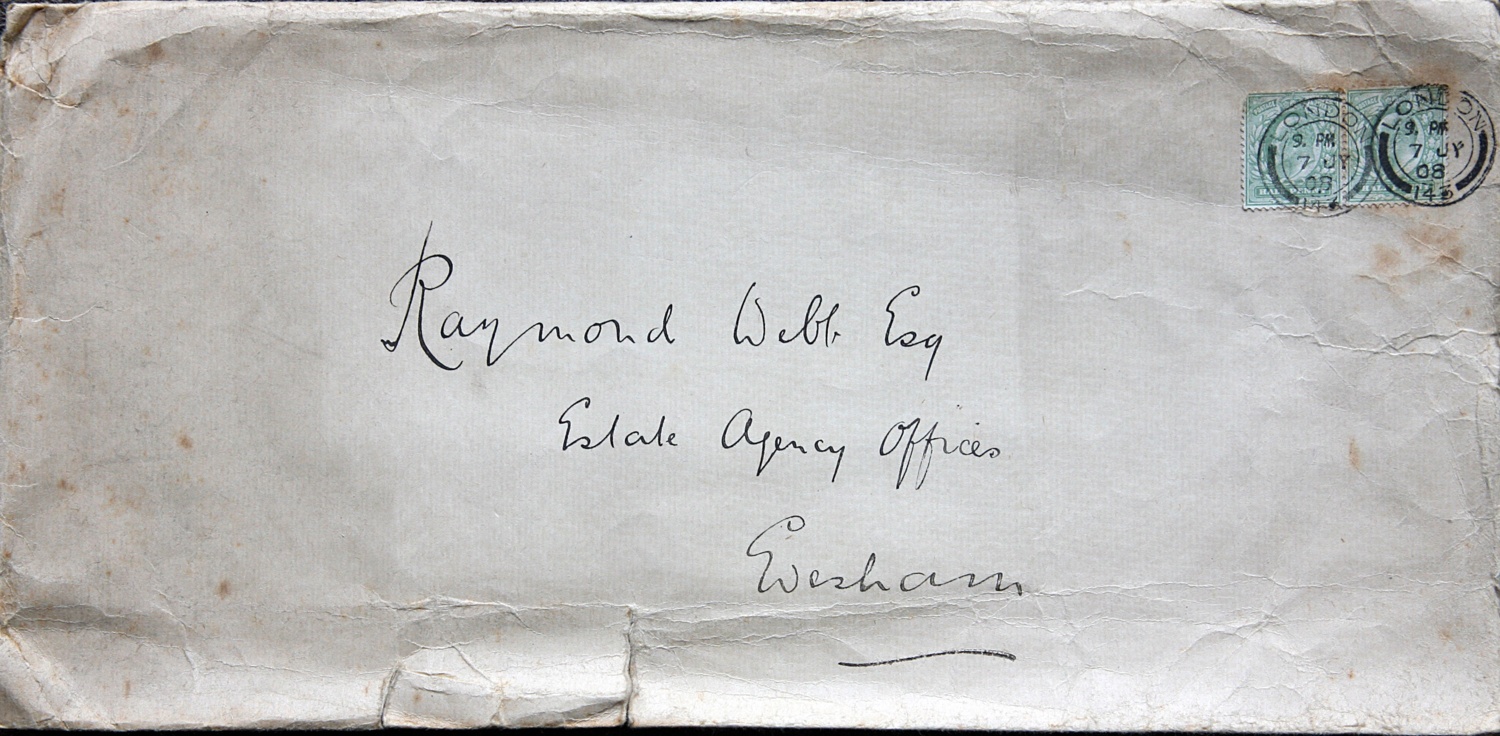 LONDON
9. PM
7 JY
08
14
LONDON
9. PM
7 JY
08
143
Raymond Webb Esq
Estate Agency Offices
Evesham